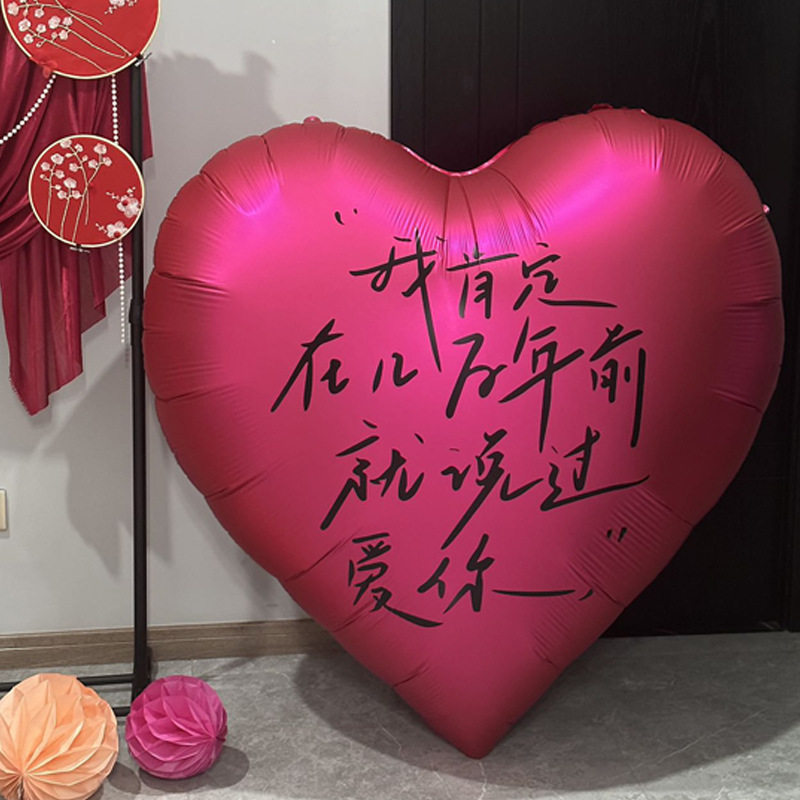 "我肯定
在几百年前
就说过
爱你，"